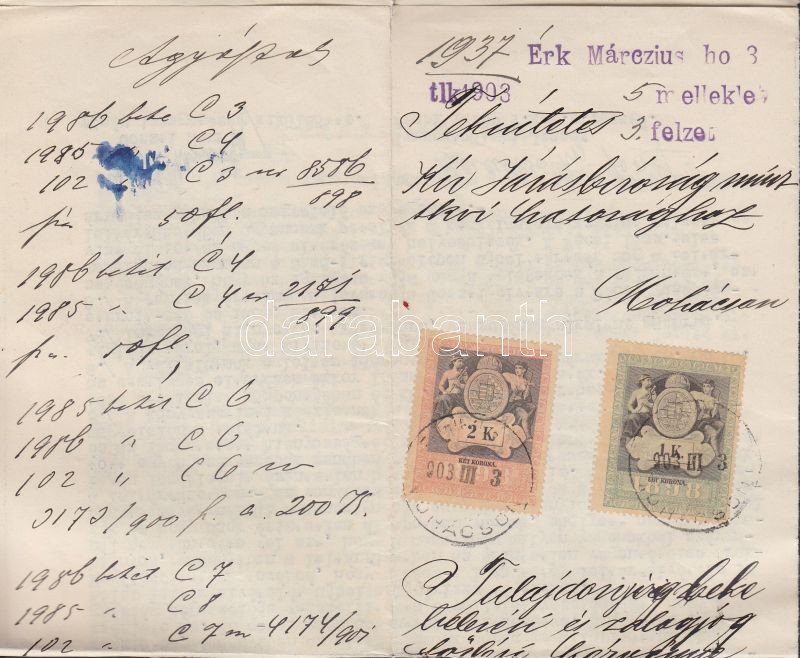 1986 betét C 3
1985 " C 4
102 " C 3 8586/898
50 fl.
1986 betét C 4
1985 " C 4 2171/899
fl.
1985 betét C 6
1986 " C 6
102 " C 6
3173/900 f. a. 200 K.
1986 betét C 7
1985 " C 8
102 " C 7 4174/901
1937 Érk Márczius ho 3
tlk1903 5 melleklet
3 felzet
Tekintetes
Kir Járásbíróság mint
tkvi hatosághoz
Mohácson
2 K.
KÉT KORONA.
903 III 3
MOHÁCS
1 K.
EGY KORONA.
903 III 3
898
Tulajdonjog beke
belezési és zálogjog
darabanth